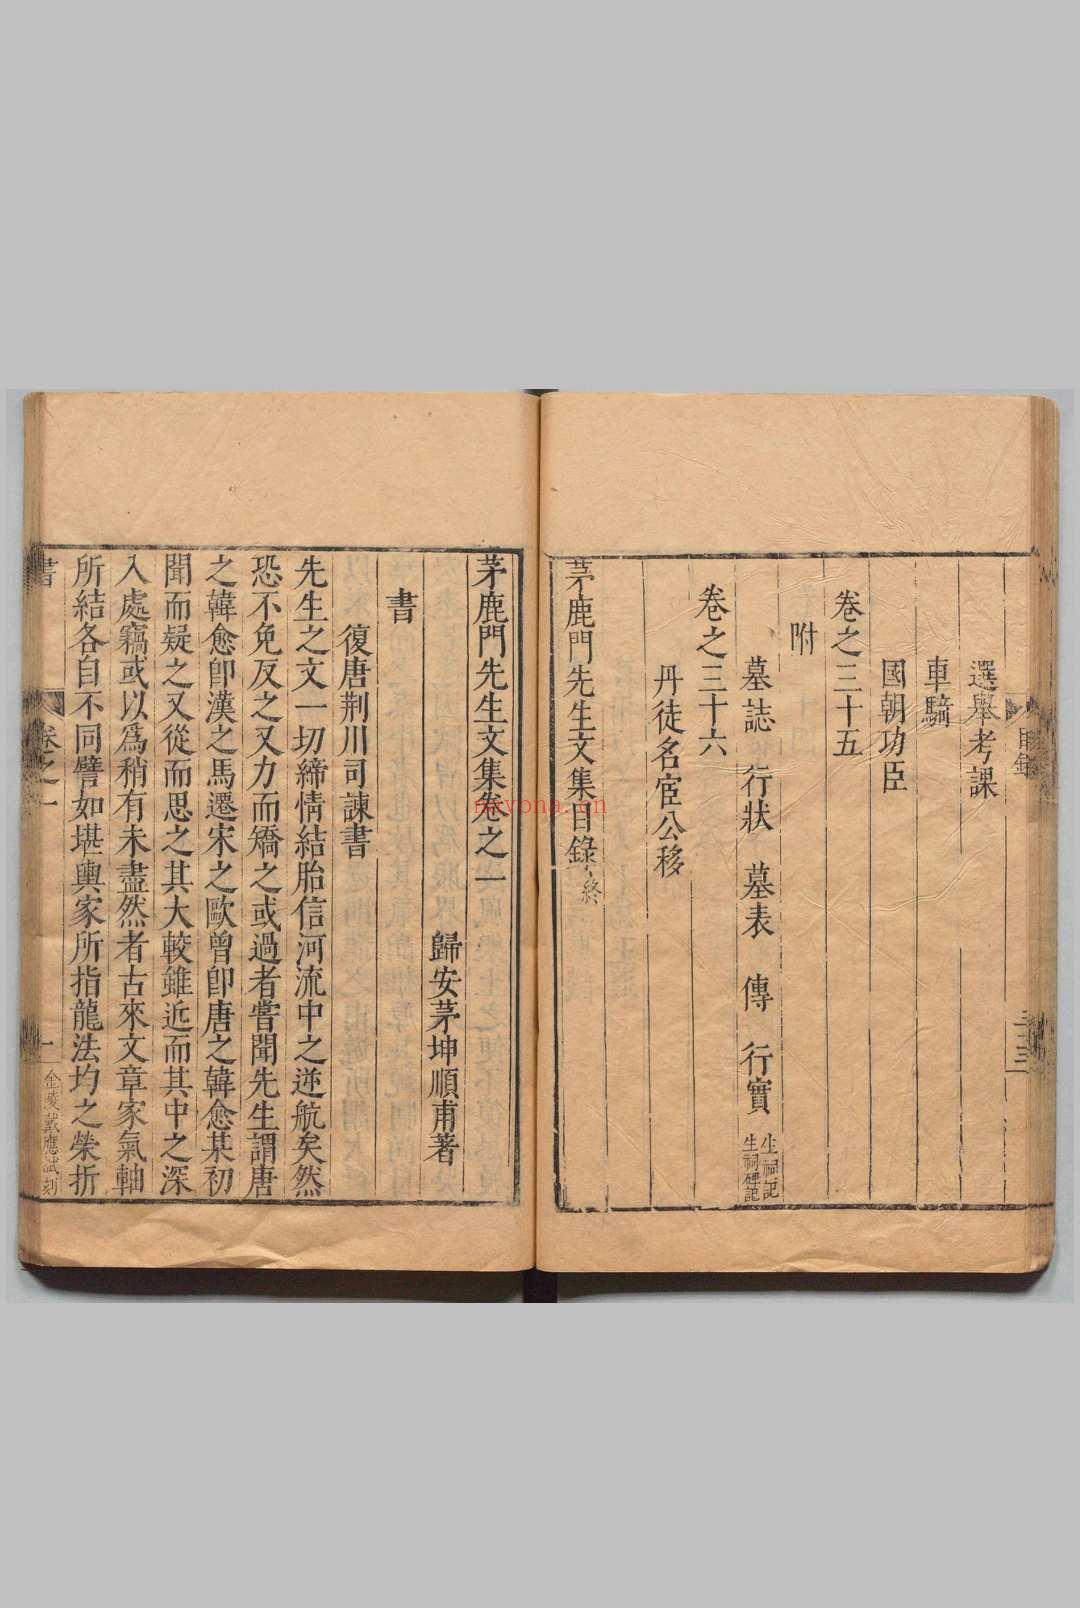 選舉考課
車騎
國朝功臣
卷之三十五
附
墓誌 行狀 墓表 傳 行實 生祠記 生祠碑記
卷之三十六
丹徒名宦公移
茅鹿門先生文集目錄 終
目錄
茅鹿門先生文集卷之一
歸安茅坤順甫著
書
復唐荆川司諫書
先生之文一切締情結胎信河流中之逆航矣然
恐不免反之又力而矯之或過者嘗聞先生謂唐
之韓愈卽漢之馬遷宋之歐曾卽唐之韓愈某初
聞而疑之又從而思之其大較雖近而其中之深
入處竊或以爲稍有未盡然者古來文章家氣軸
所結各自不同譬如堪輿家所指龍法均之縈折
書 卷之一 一 金陵戴應試刻
nayona.cn